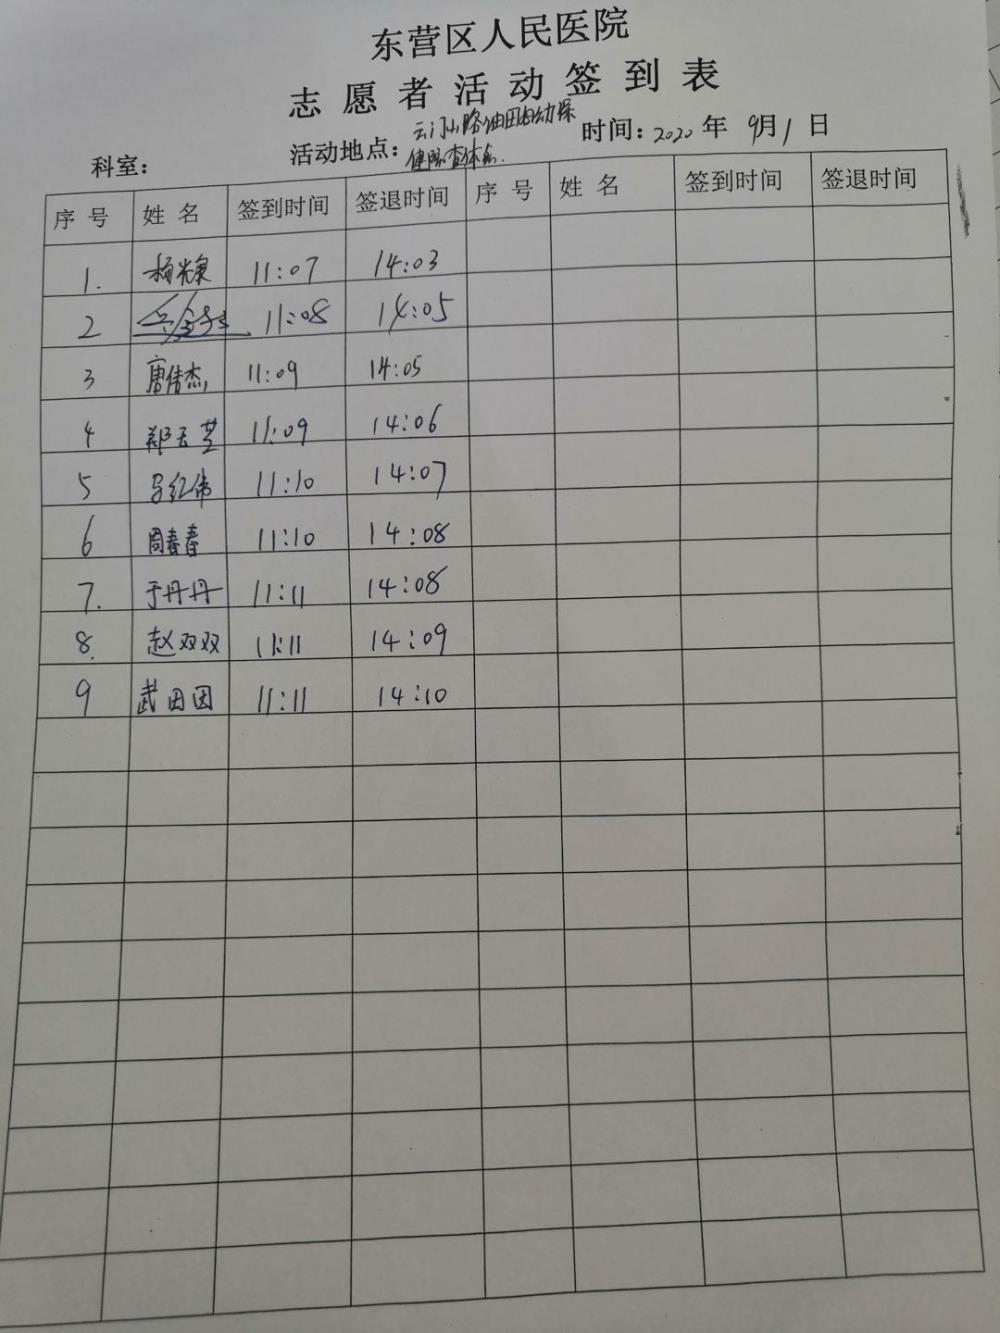 东营区人民医院
志愿者活动签到表
科室： 活动地点：云门山路油田自动 时间：2020年 9月1日
查体点.
序号 姓名 签到时间 签退时间 序号 姓名 签到时间 签退时间
1. 杨光泉 11:07 14:03
2 11:08 14:05
3 唐伟杰 11:09 14:05
4 郑云芝 11:09 14:06
5 马红伟 11:10 14:07
6 周春春 11:10 14:08
7. 于丹丹 11:11 14:08
8. 赵双双 11:11 14:09
9 武田田 11:11 14:10